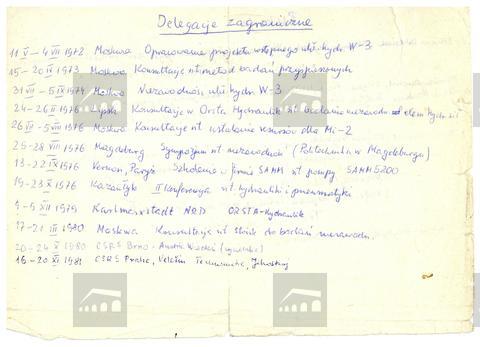 Delegacje zagraniczne
11 V – 4 VII 1972 Moskwa Opracowanie projektu wstępnego ukł. hydr. W-3
15–20 IV 1973 Moskwa Konsultacje nt. metod badań przyspieszonych
31 VII – 5 1974 Moskwa Niezawodność ukł. hydr. W-3
24–26 1976 Lipsk Konsultacje w Orsta Hydraulik nt. badania niezawodn.
26 VII – 5 VIII 1976 Moskwa Konsultacje nt. ustalania resursów dla Mi-2
25–28 VIII 1976 Magdeburg Sympozjum nt. niezawodności (Politechnika w Magdeburgu)
13–22 IX 1976 Vernon, Paryż Szkolenie w firmie SAMM nt. pompy SAMM 5200
19–23 X 1976 Kazanłyk II Konferencja nt. hydrauliki i pneumatyki
XII 1979 Karlmarxstadt NRD ORSTA-Hydraulik
17–21 1980 Moskwa Konsultacje nt. badań niezawodn.
20–24 X 1980 CSRS Brno - Austria Wiedeń (wycieczka)
16–20 XI 1981 CSRS Praha,